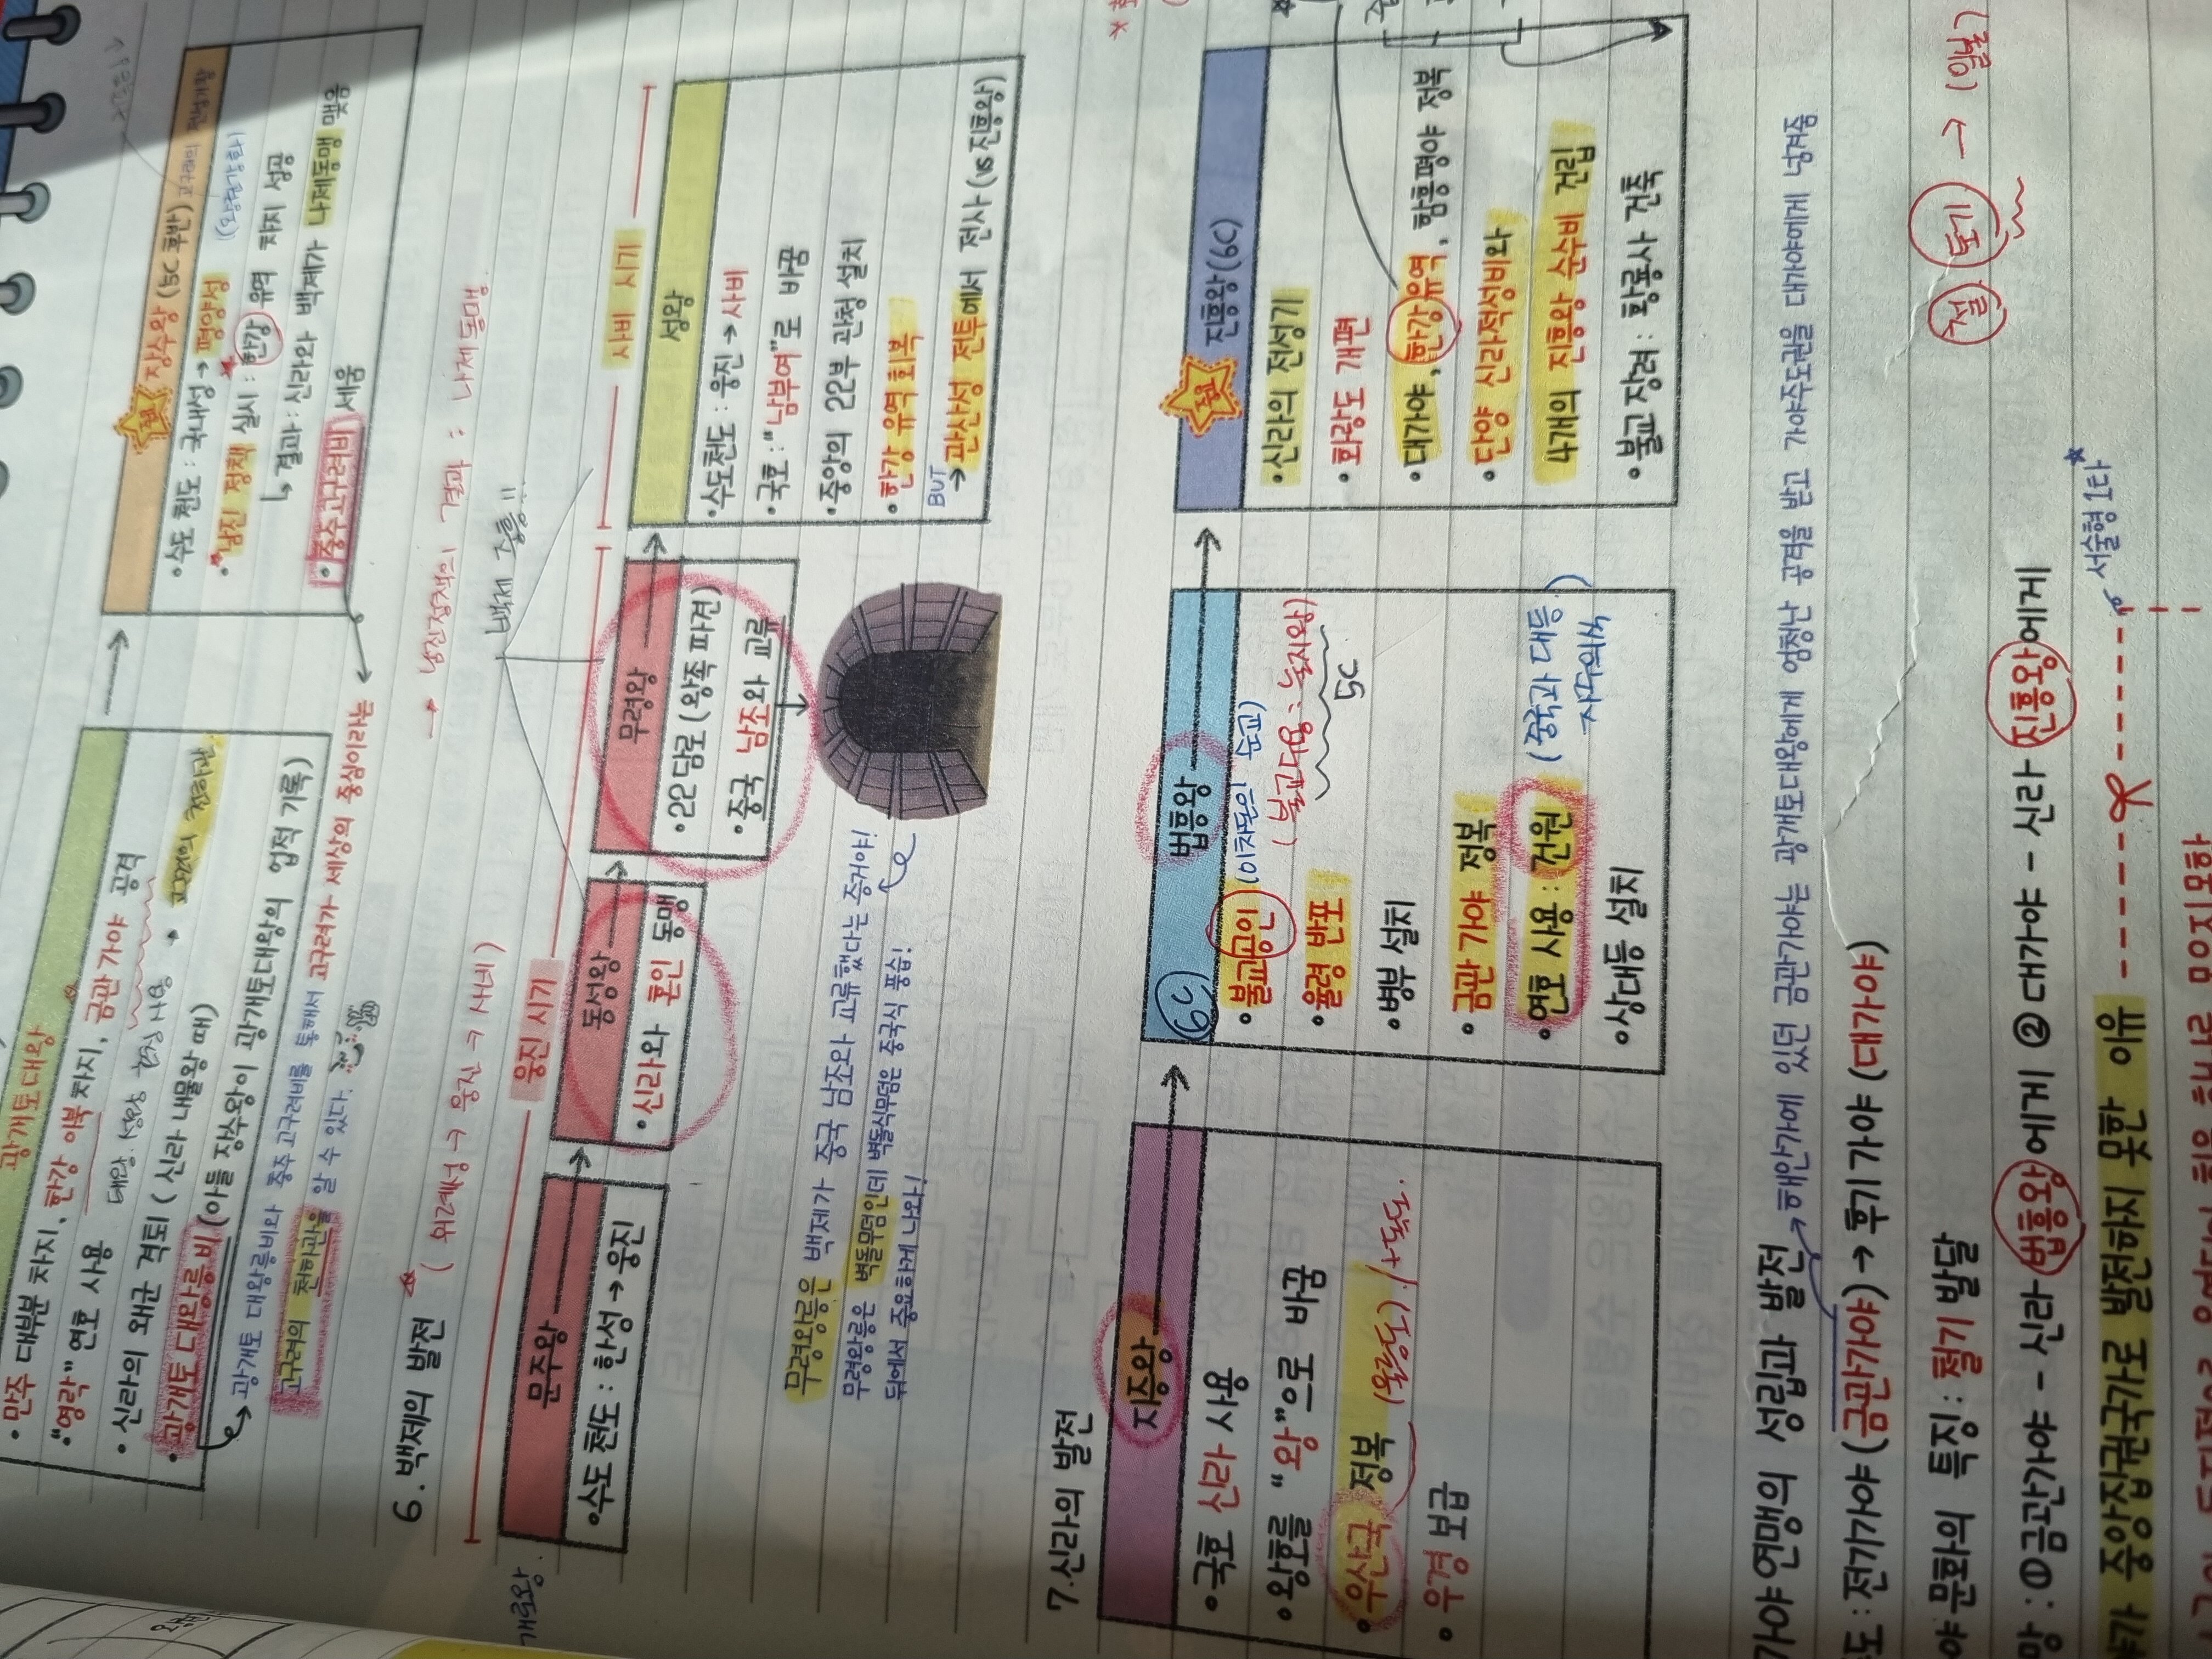 광개토대왕
• 만주 대부분 차지, 한강 이북 차지, 금관가야 공격
• "영락" 연호 사용
• 신라의 왜군 격퇴 (신라 내물왕 때)
• 광개토 대왕릉비 (아들 장수왕이 광개토대왕의 업적 기록)
고구려의 천하관
광개토 대왕릉비와 중주 고구려비를 통해서 고구려가 세상의 중심이라는
고구려의 천하관을 알 수 있다.
중요
장수왕 (5C 후반) 고구려의 전성기왕
• 수도 천도 : 국내성 → 평양성
(왕권강화)
• 남진 정책 실시 : 한강 유역 차지 성공
↳ 결과 : 신라와 백제가 나제동맹 맺음
• 중주고구려비 세움
6. 백제의 발전
→ 남진정책의 결과 : 나제동맹
(위례성 → 웅진 → 사비)
백제 중흥!!
웅진 시기
사비 시기
개로왕
문주왕
• 수도 천도 : 한성 → 웅진
동성왕
• 신라와 혼인 동맹
무령왕
• 22담로 (왕족 파견)
• 중국 남조와 교류
성왕
• 수도천도 : 웅진 → 사비
• 국호 : "남부여"로 바꿈
• 중앙의 22부 관청 설치
• 한강 유역 회복
BUT
→ 관산성 전투에서 전사 (vs 진흥왕)
무령왕릉은 백제가 중국 남조와 교류했다는 증거야!
무령왕릉은 벽돌무덤인데 벽돌식무덤은 중국식 풍습!
뒤에서 중요하게 나와!
7. 신라의 발전
지증왕
• 국호 신라 사용
• 왕호를 "왕"으로 바꿈
• 우산국 정복 (울릉도)
• 우경 보급
6C
법흥왕
• 불교공인 (이차돈의 순교)
(불교수용 : 눌지왕)
5C
• 율령 반포
• 병부 설치
• 금관 가야 정복
• 연호 사용 : 건원 (중국과 대등)
자주의식
• 상대등 설치
중요
진흥왕 (6C)
• 신라의 전성기
• 화랑도 개편
• 대가야, 한강유역, 함흥평야 정복
• 단양 신라적성비와
4개의 진흥왕 순수비 건립
• 불교 장려 : 황룡사 건축
가야 연맹의 성립과 발전
→ 해안가에 있던 금관가야는 광개토대왕에게 엄청난 공격을 받고 가야주도권을 대가야에게 넘겨줌
도 : 전기가야 (금관가야) → 후기 가야 (대가야)
야 문화의 특징 : 철기 발달
철 토기 → (일본)
망 : ① 금관가야 - 신라 법흥왕에게 ② 대가야 - 신라 진흥왕에게
야가 중앙집권국가로 발전하지 못한 이유
서술형 1타